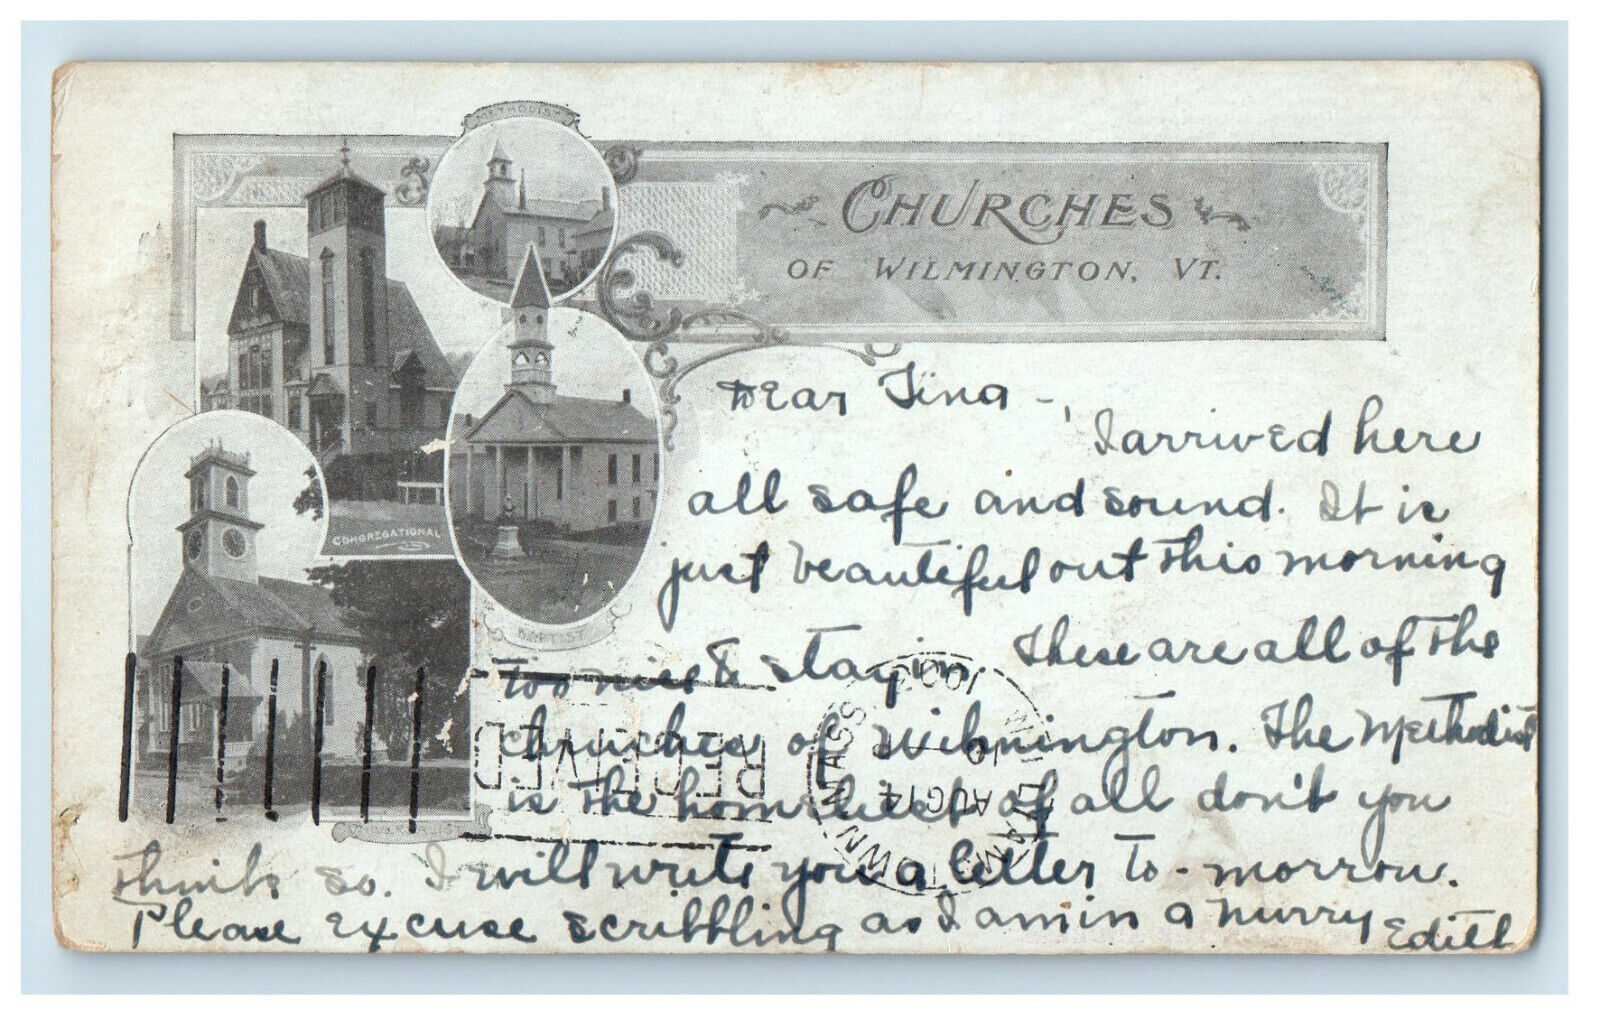 METHODIST
CHURCHES
OF WILMINGTON, VT.
CONGREGATIONAL
BAPTIST
Dear Tina -,
I arrived here
all safe and sound. It is
just beautiful out this morning
too nice to stay in. These are all of the
churches of Wilmington. The Methodist
is the homeliest of all don't you
think so. I will write you a letter to-morrow.
Please excuse scribbling as I am in a hurry
Edith
RECEIVED
WATERTOWN MASS.
AUG 14